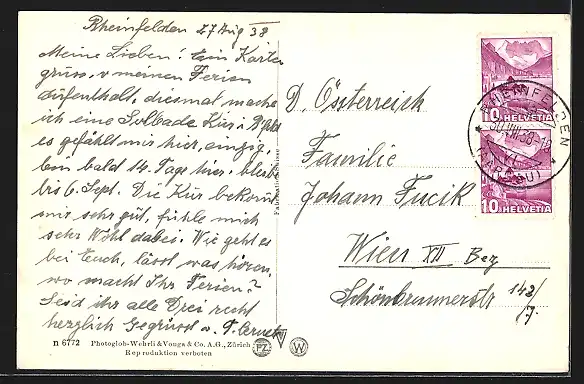 Rheinfelden 27 Aug 38
Meine Lieben! Ein Karten
gruss, v meinen Ferien
aufenthalt, diesmal mache
ich eine Solbade Kur.
es gefällt mir hier,
bin bald 14. Tage hier, bleibe
bis 6. Sept. Die Kur bekom
mir sehr gut, fühle mich
sehr Wohl dabei. Wie geht es
bei Euch, lässt was hören,
wo macht Ihr Ferien?
Seid ihr alle Drei recht
herzlich Gegrüsst u.
D. Österreich
Familie
Johann Fucik
Wien XII Bez
Schönbrunnerstr 142/7.
10 HELVETIA
10 HELVETIA
RHEINFELDEN
(AARGAU)
n 6772 Photoglob-Wehrli & Vouga & Co. A.G., Zürich
Reproduktion verboten
PZ W